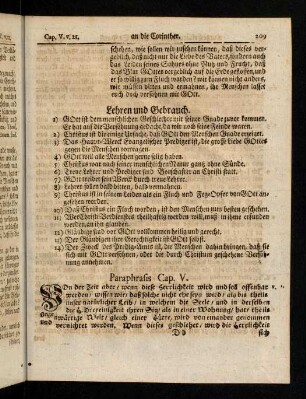 Cap. V. v. 21. an die Corinther. 209
schehen, wie sollen wir zusehen können, daß dieses ver-
geblich, daß nicht nur die Liebe des Vaters, sondern auch
das Leiden seines Sohnes ohne Nutz und Frucht, daß
das Blut GOttes vergeblich auf die Erde geflossen, und
er so willig zum Fluch worden? wie können wir anders,
wir müssen bitten und ermahnen, ihr Menschen lasset
euch doch versöhnen mit GOtt.
Lehren und Gebrauch.
1) GOtt ist dem menschlichen Geschlechte mit seiner Gnade zuvor kommen.
Er hat auf die Versöhnung gedacht, da wir noch seine Feinde waren.
2) Christus ist die einige Ursach, daß GOtt den Menschen Gnade erzeiget.
3) Das Haupt-Werck Evangelischer Prediger ist, die grosse Liebe GOttes
gegen die Menschen
4) GOtt will alle Menschen gerne selig haben.
5) Christus war nach seiner menschlichen Natur gantz ohne Sünde.
6) Treue Lehrer und Prediger sind Botschafter an Christi statt.
7) GOtt selbst sein Werck durch treue Lehrer.
8) Lehrer sollen bitten, daß vermahnen.
9) Christus ist in seinem Leiden als ein Fluch und Feg-Opfer von GOtt an-
gesehen worden.
10) Daß Christus ein Fluch worden, ist den Menschen zum besten geschehen.
11) Wer Christi Verdienstes theilhaftig werden will, muß in ihme erfunden
werden
12) Gläubige sind vor GOtt vollkommen heilig und gerecht.
13) Der Gläubigen ihre Gerechtigkeit ist GOtt selbst.
14) Der Zweck des Predig-Amts ist, die Menschen dahin bringen, daß sie
sich mit GOtt versöhnen, oder die durch Christum geschehene Versöhnung
annehmen.
Paraphrasis Cap. V.
der Zeit aber, wenn diese Herrlichkeit wird und soll offenbar
werden, wissen wir daß solche nicht ehe seyn werd, als bis theils
unser natürlicher Leib, in welchem die Seele, und in derselben
die H. Dreyeinigkeit ihren Sitz, als in einer Wohnung, hat; theils
gegenwärtige Welt, gleich einer Hütte, wird von einander genommen
vernichtet werden. Wenn dieses geschiehet, wird die Herrlichkeit
D d